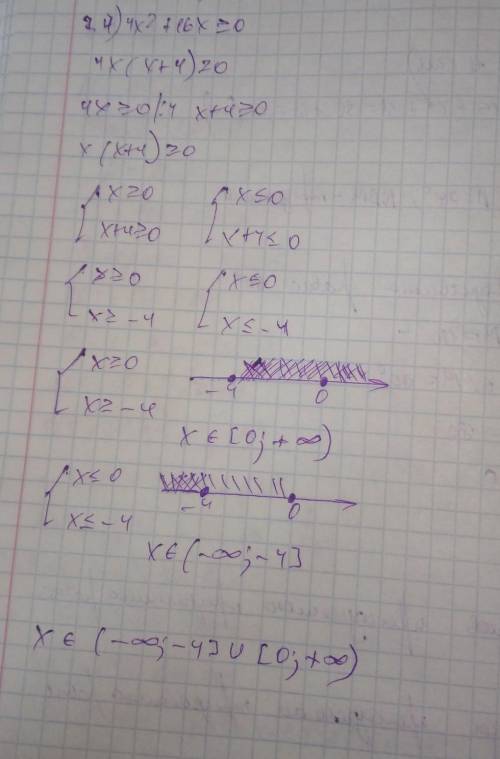 2.4) 4x² + 16x ≥ 0
4x (x+4) ≥ 0
4x ≥ 0 |:4   x+4 ≥ 0
x (x+4) ≥ 0
{ x ≥ 0   { x ≤ 0
x+4 ≥ 0   x+4 ≤ 0
{ x ≥ 0   { x ≤ 0
x ≥ -4   x ≤ -4
{ x ≥ 0
x ≥ -4   -4   0
x ∈ [0; +∞)
{ x ≤ 0
x ≤ -4   -4   0
x ∈ (-∞; -4]
x ∈ (-∞; -4] ∪ [0; +∞)